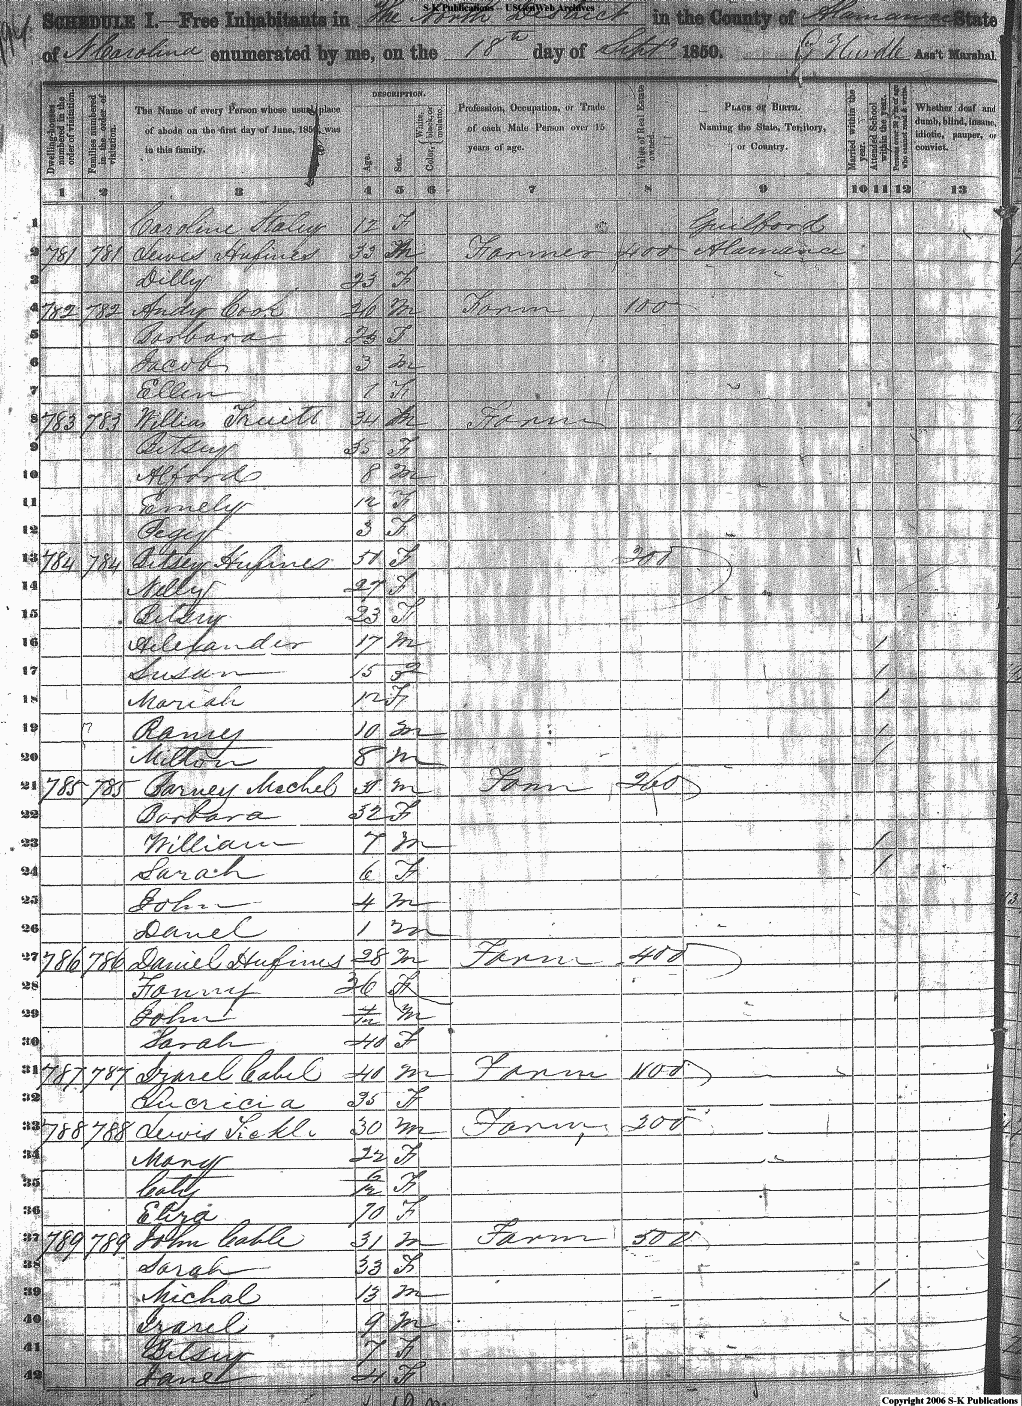 S-K Publications – USGenWeb Archives
SCHEDULE I.—Free Inhabitants in The North District in the County of Alamance State
of N Carolina enumerated by me, on the 18th day of Sept 1850. Ass't Marshal
Dwelling-houses numbered in the order of visitation.
Families numbered in the order of visitation.
The Name of every Person whose usual place of abode on the first day of June, 1850, was in this family.
DESCRIPTION.
Age.
Sex.
Color, White, black, or mulatto.
Profession, Occupation, or Trade of each Male Person over 15 years of age.
Value of Real Estate owned.
PLACE OF BIRTH. Naming the State, Territory, or Country.
Married within the year.
Attended School within the year.
Persons over 20 y'rs of age who cannot read & write.
Whether deaf and dumb, blind, insane, idiotic, pauper, or convict.
1 2 3 4 5 6 7 8 9 10 11 12 13
1 Caroline Staley 12 F Guilford
2 781 781 Lewis Hufines 33 M Farmer 400 Alamance
3 Dilly 23 F
4 782 782 Andy Cook 26 M Farm 100
5 Barbara 25 F
6 Jacob 3 M
7 Ellen 1 F
8 783 783 William Truitt 34 M Farm
9 Bitsey 35 F
10 Alford 8 M
11 Emely 12 F
12 Pegy 3 F
13 784 784 Bitsey Hufines 50 F 200
14 Nelly 27 F
15 Bitsey 23 F
16 Alexander 17 M 1
17 Susan 15 F 1
18 Mariah 12 F 1
19 Raney 10 M 1
20 Milton 8 M 1
21 785 785 Barney Mechel M Farm 260
22 Barbara 32 F
23 William 7 M 1
24 Sarah 6 F 1
25 John 4 M
26 Danel 1 M
27 786 786 Daniel Hufines 28 M Farm 400
28 Fanny 36 F
29 John 4/12 M
30 Sarah 40 F
31 787 787 Izarel Cabel 40 M Farm 1100
32 Lucricia 35 F
33 788 788 Lewis Tickle 30 M Farm 200
34 Mary 22 F
35 Caty 6/12 F
36 Eliza 70 F
37 789 789 John Cable 31 M Farm 500
38 Sarah 33 F
39 Michal 13 M 1
40 Izarel 9 M
41 Bitsey 7 F
42 Jane 4 F
Copyright 2006 S-K Publications